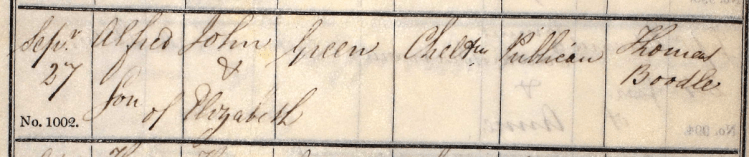 Sepr. Alfred John Green Chelt'm Publican Thomas
27 & Boodle
Son of Elizabeth
No. 1002.